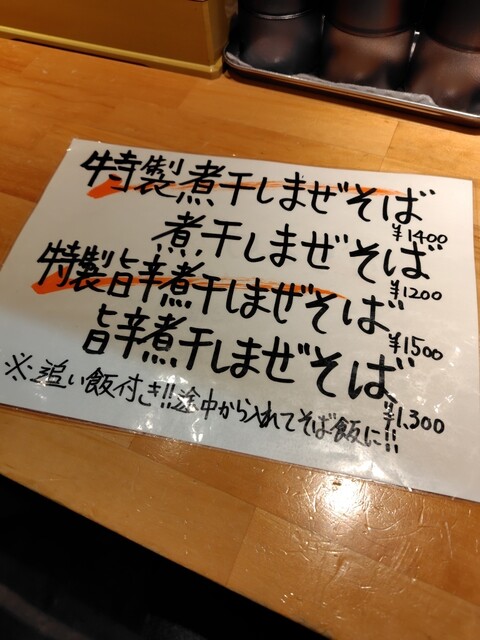 特製煮干しまぜそば
¥1400
煮干しまぜそば
¥1200
特製旨辛煮干しまぜそば
¥1500
旨辛煮干しまぜそば
¥1,300
※追い飯付き!!途中から入れてそば飯に!!